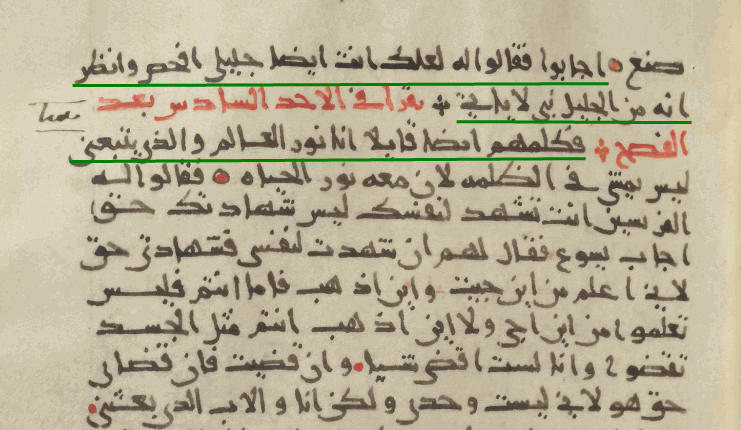 صنع • اجابوا فقالوا له لعلك انت ايضا جليلي افحص وانظر
انه من الجليل نبي لا ياتي ܀ يقرا في الاحد السادس بعد
الفصح ܀ فكلمهم ايضا قايلا انا نور العالم والذي يتبعني
ليس يمشي في الظلمه لان معه نور الحياه • فقالوا له
الفريسين انت تشهد لنفسك ليس شهادتك حق
اجاب يسوع فقال لهم ان شهدت لنفسي فشهادتي حق
لاني اعلم من اين جيت واين اذهب فاما انتم فليس
تعلموا من اين اجي ولا اين اذهب انتم مثل الجسد
تقضوا وانا لست اقضي شيا • وان قضيت فان قضاي
حق هو لاني ليست وحدي ولكن انا والاب الذي بعثني •